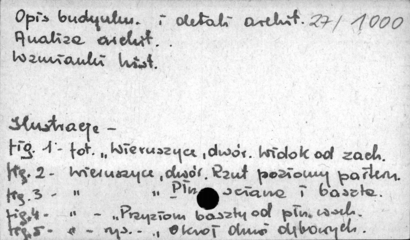 Opis budynku. i detali archit. 27/1000
Analiza archit. .
Wzmianki hist.
Ilustracje –
fig. 1 - fot. „Wieruszyce, dwór. Widok od zach.
fig. 2 - Wieruszyce, dwór. Rzut poziomy parteru.
fig. 3 - " " Płn. ściana i baszta.
fig. 4 - " - „Przyziom baszty od płn. wsch.
fig. 5 - " - rys. - „ okrój dmu dybowych.